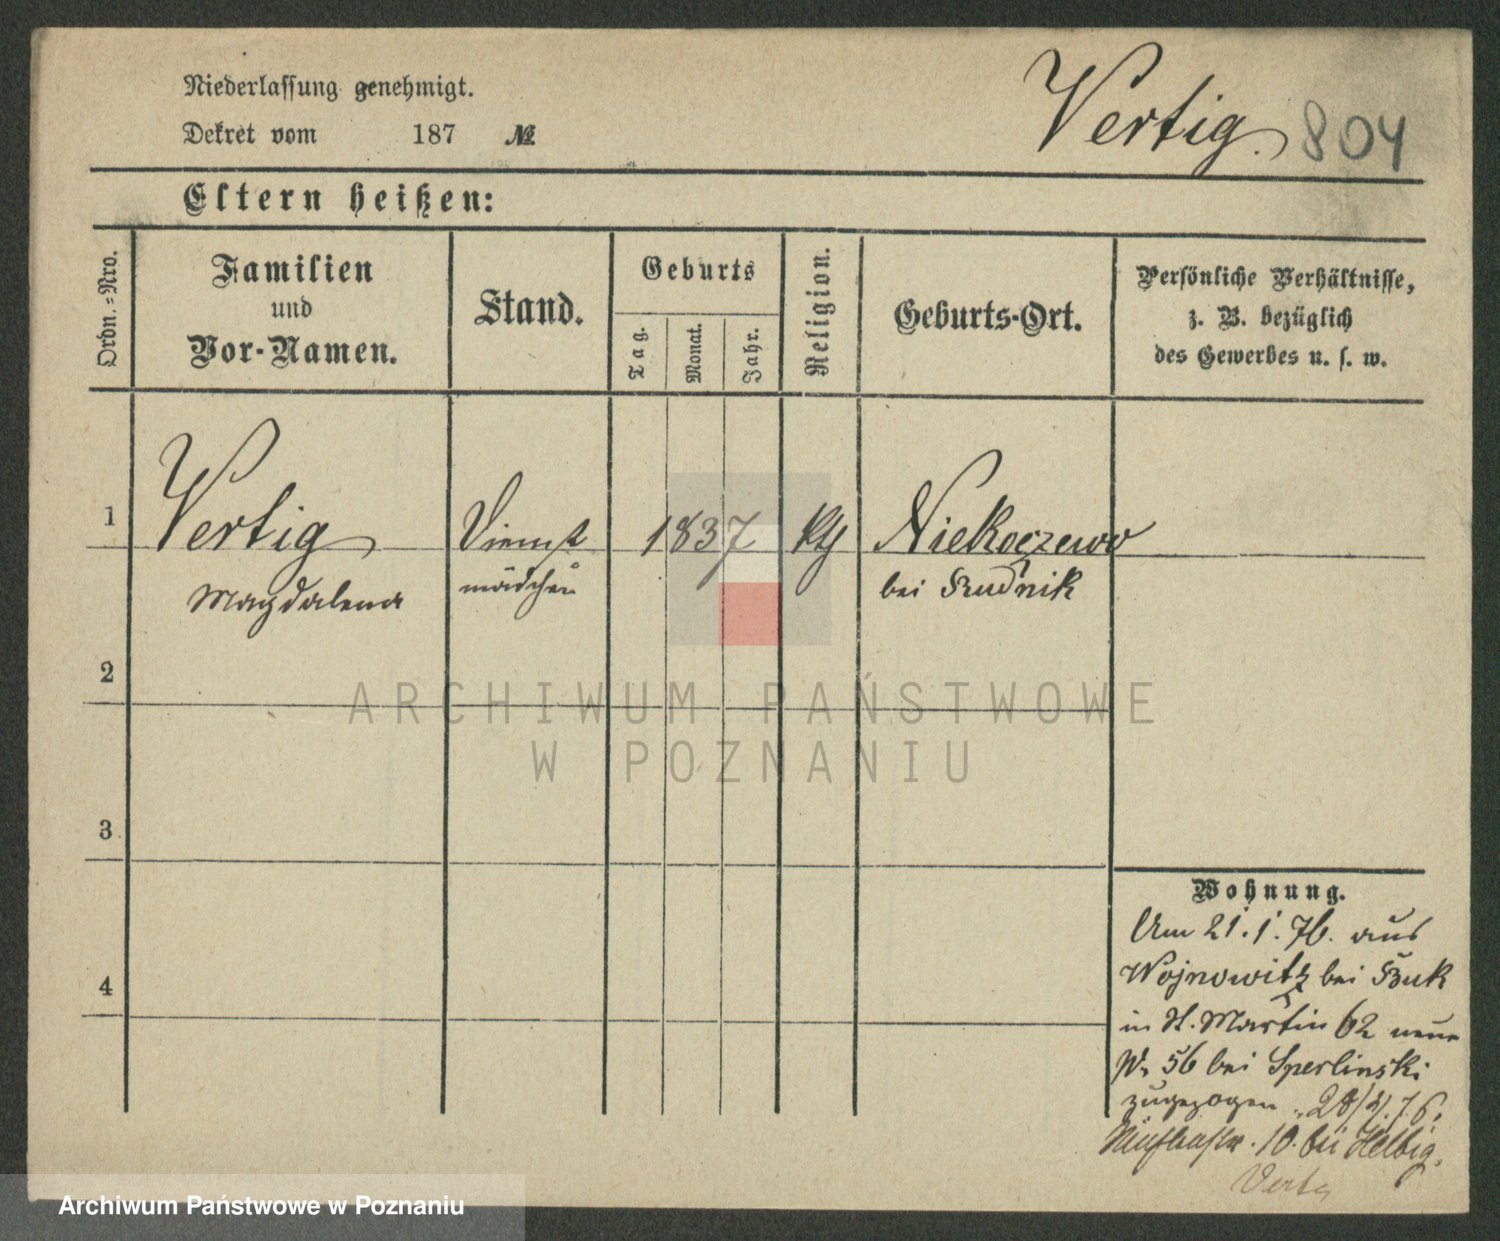 Niederlassung genehmigt.
Dekret vom 187 №
Vertig. 804
Eltern heißen:
Ordn.-Nro.
Familien
und
Vor-Namen.
Stand.
Geburts
Tag.
Monat.
Jahr.
Religion.
Geburts-Ort.
Persönliche Verhältnisse,
z. B. bezüglich
des Gewerbes u. s. w.
1 Vertig Dienst 1837 kth Niekoczewo
Magdalena mädchen bei Rudnik
2
3
4
Wohnung.
Am 21.1.76. aus
Wojnowitz bei Buk
in St. Martin 62 neue
Nr 56 bei Sperlinski
zugezogen
10. bei Helbig.
ARCHIWUM PAŃSTWOWE
W POZNANIU
Archiwum Państwowe w Poznaniu